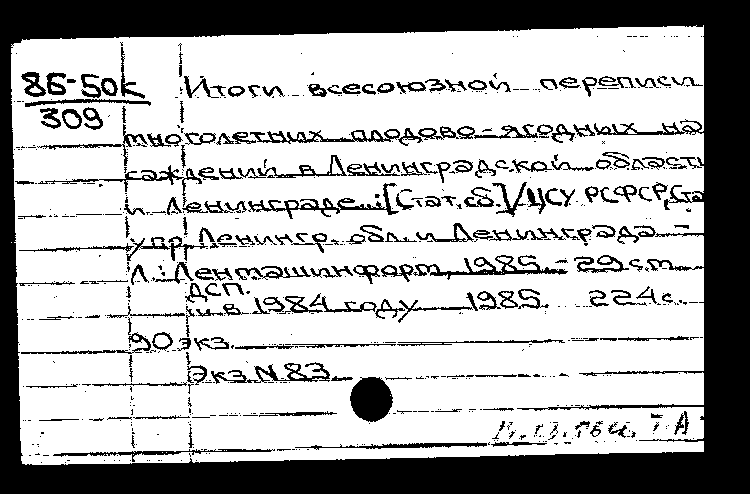 86-50к
309
Итоги всесоюзной переписи
многолетних плодово-ягодных на
саждений в Ленинградской област
и Ленинграде..:[Стат. сб.]/ЦСУ РСФСР, Ста
упр. Ленингр. обл. и Ленинграда -
Л.: Ленташинформ, 1985. - 29 см.
ДСП.
в 1984 году 1985. 224 с.
90 экз.
Экз. N 83.
Т А